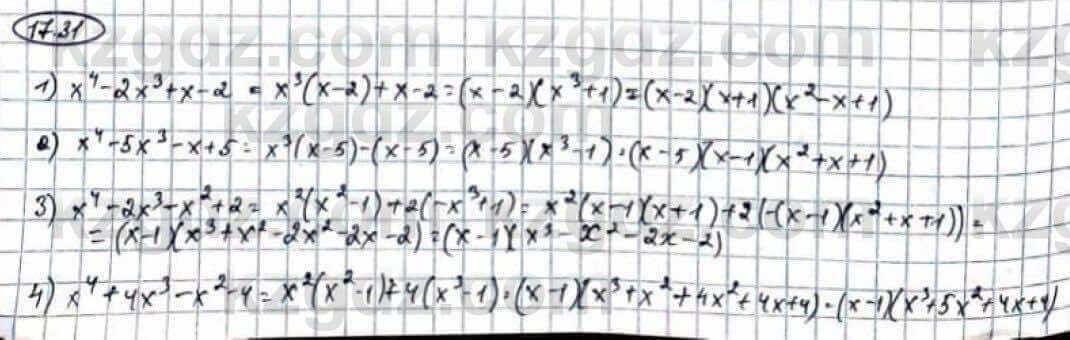 17.31
1) x⁴-2x³+x-2 = x³(x-2)+x-2=(x-2)(x³+1)=(x-2)(x+1)(x²-x+1)
2) x⁴-5x³-x+5=x³(x-5)-(x-5)=(x-5)(x³-1)=(x-5)(x-1)(x²+x+1)
3) x⁴-2x³-x²+2= x²(x²-1)+2(-x³+1)= x²(x-1)(x+1)+2(-(x-1)(x²+x+1))=
=(x-1)(x³+x²-2x²-2x-2)=(x-1)(x³-x²-2x-2)
4) x⁴+4x³-x²-4=x²(x²-1)+4(x³-1)=(x-1)(x³+x²+4x²+4x+4)=(x-1)(x³+5x²+4x+4)
kzgdz.com